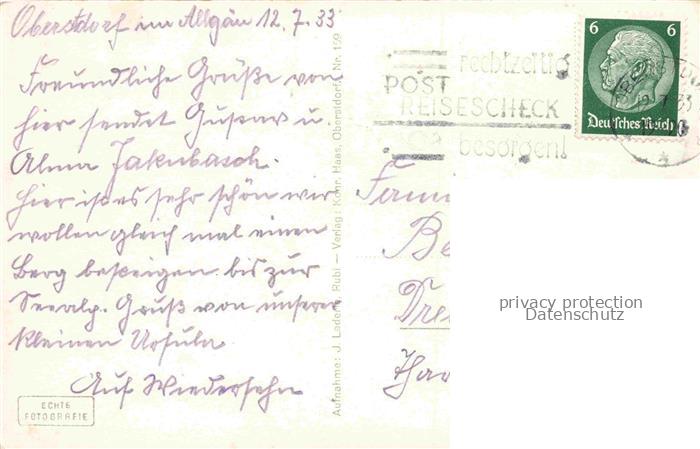 Oberstdorf im Allgäu 12.7.33
Freundliche Grüße von
hier sendet Gustav u.
Alma Jakubasch.
Hier ist es sehr schön wir
wollen gleich mal einen
Berg besteigen bis zur
Seealp. Gruß von unserer
kleinen Ursula.
Auf Wiedersehn
ECHTE
FOTOGRAFIE
Verlag: Konr. Haas, Oberstdorf, Nr. 159
rechtzeitig
POST
REISESCHECK
besorgen!
6 6
Deutsches Reich
Fam
Be
Dre
privacy protection
Datenschutz